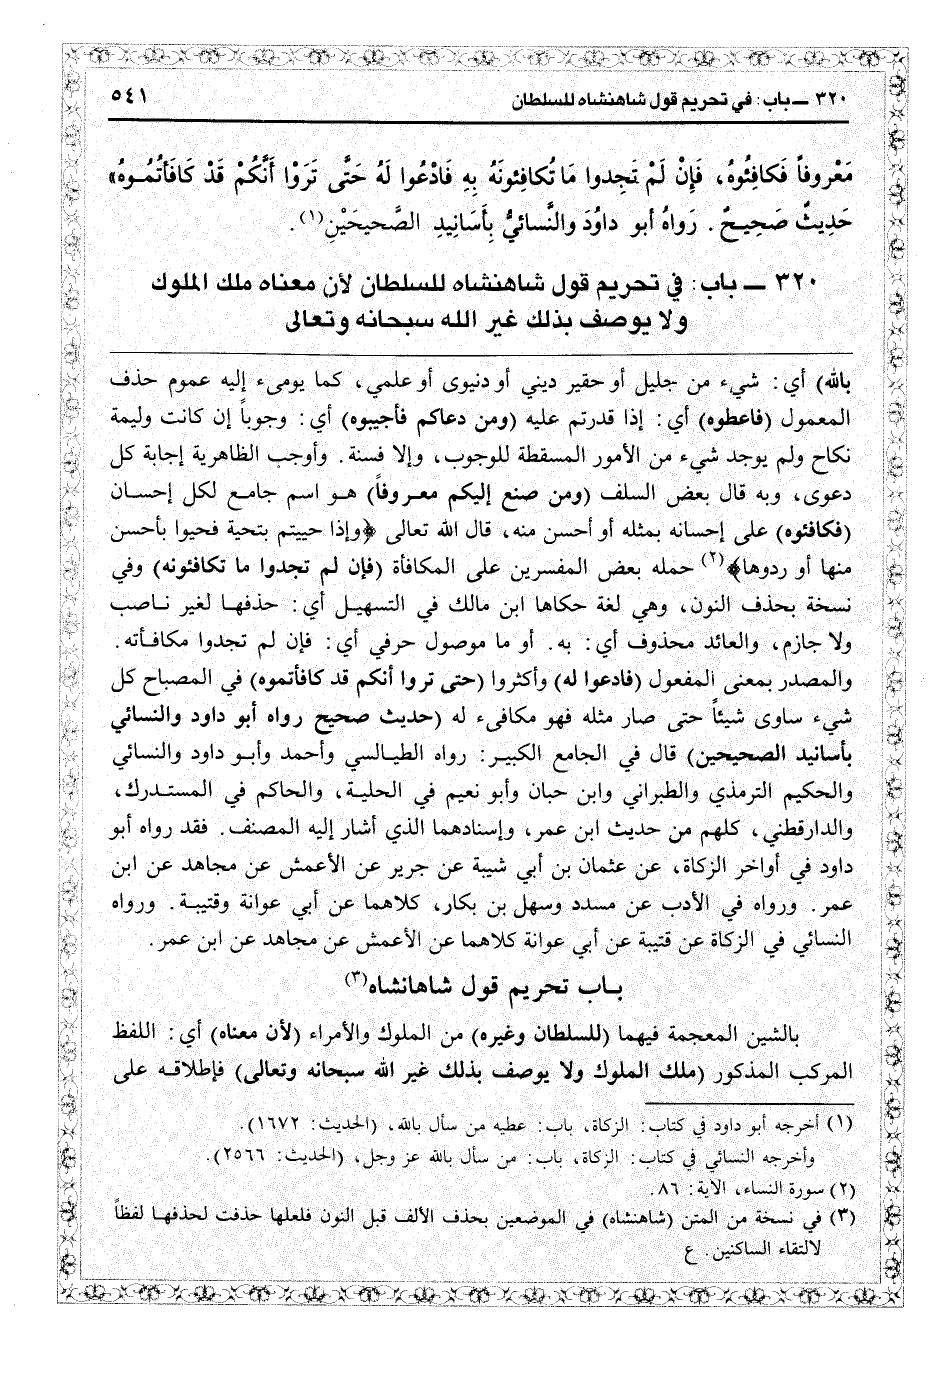 ٣٢٠ ــ باب: في تحريم قول شاهنشاه للسلطان
٥٤١
مَعْرُوفاً فَكافِئُوهُ، فَإِنْ لَمْ تَجِدوا مَا تُكافِئونَهُ بِهِ فَادْعُوا لَهُ حَتَّى تَرَوْا أَنَّكُمْ قَدْ كَافَأْتُمُـوهُ»
حَدِيثٌ صَحِيـحٌ. رَوَاهُ أبو داوُدَ والنَّسائيُّ بِأَسَانِيدِ الصَّحيحَيْنِ(١).
٣٢٠ ــ باب: في تحريم قول شاهنشاه للسلطان لأن معناه ملك الملوك
ولا يوصف بذلك غير الله سبحانه وتعالى
بالله) أي: شيء من جليل أو حقير ديني أو دنيوى أو علمي، كما يومىء إليه عموم حذف
المعمول (فاعطوه) أي: إذا قدرتم عليه (ومن دعاكم فأجيبوه) أي: وجوباً إن كانت وليمة
نكاح ولم يوجد شيء من الأمور المسقطة للوجوب، وإلا فسنة. وأوجب الظاهرية إجابة كل
دعوى، وبه قال بعض السلف (ومن صنع إليكم معروفاً) هو اسم جامع لكل إحسان
(فكافئوه) على إحسانه بمثله أو أحسن منه، قال الله تعالى ﴿وإذا حييتم بتحية فحيوا بأحسن
منها أو ردوها﴾(٢) حمله بعض المفسرين على المكافأة (فإن لم تجدوا ما تكافئونه) وفي
نسخة بحذف النون، وهي لغة حكاها ابن مالك في التسهيل أي: حذفها لغير ناصب
ولا جازم، والعائد محذوف أي: به. أو ما موصول حرفي أي: فإن لم تجدوا مكافأته.
والمصدر بمعنى المفعول (فادعوا له) وأكثروا (حتى تروا أنكم قد كافأتموه) في المصباح كل
شيء ساوى شيئاً حتى صار مثله فهو مكافىء له (حديث صحيح رواه أبو داود والنسائي
بأسانيد الصحيحين) قال في الجامع الكبير: رواه الطيـالسي وأحمد وأبـو داود والنسائي
والحكيم الترمذي والطبراني وابن حبان وأبو نعيم في الحلية، والحاكم في المستـدرك،
والدارقطني، كلهم من حديث ابن عمر، وإسنادهما الذي أشار إليه المصنف. فقد رواه أبو
داود في أواخر الزكاة، عن عثمان بن أبي شيبة عن جرير عن الأعمش عن مجاهد عن ابن
عمر. ورواه في الأدب عن مسدد وسهل بن بكار، كلاهما عن أبي عوانة وقتيبة. ورواه
النسائي في الزكاة عن قتيبة عن أبي عوانة كلاهما عن الأعمش عن مجاهد عن ابن عمر.
بـاب تحريم قول شاهانشاه(٣)
بالشين المعجمة فيهما (للسلطان وغيره) من الملوك والأمراء (لأن معناه) أي: اللفظ
المركب المذكور (ملك الملوك ولا يوصف بذلك غير الله سبحانه وتعالى) فإطلاقه على
(١) أخرجه أبو داود في كتاب: الزكاة، باب: عطيه من سأل بالله، (الحديث: ١٦٧٢).
وأخرجه النسائي في كتاب: الزكاة، باب: من سأل بالله عز وجل، (الحديث: ٢٥٦٦).
(٢) سورة النساء، الآية: ٨٦.
(٣) في نسخة من المتن (شاهنشاه) في الموضعين بحذف الألف قبل النون فلعلها حذفت لحذفهـا لفظاً
لالتقاء الساكنين. ع